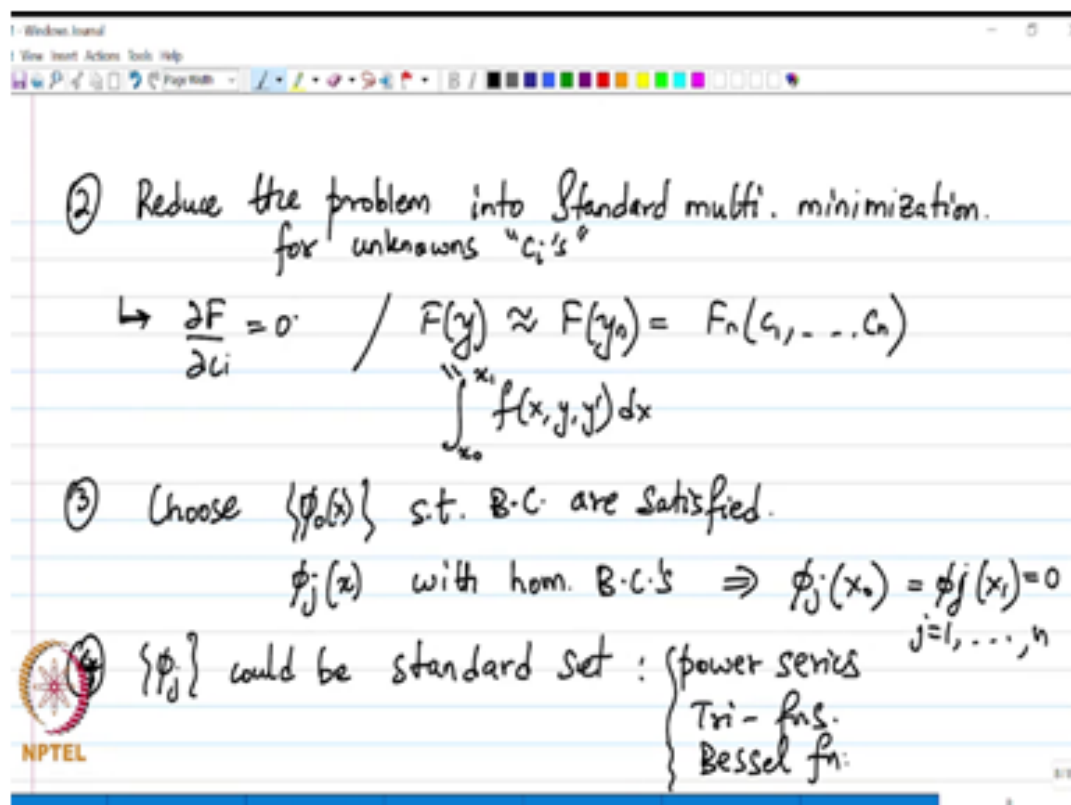 - Windows Journal
View Insert Actions Tools Help
Page Width
B I
② Reduce the problem into Standard multi. minimization.
for unknowns "cᵢ's"
↳ ∂F/∂cᵢ = 0 / F(y) ≈ F(yₙ) = Fₙ(c₁, ... cₙ)
∫ₓ₀ˣ¹ f(x, y, y') dx
③ Choose {φ₀(x)} s.t. B.C. are satisfied.
φⱼ(x) with hom. B.C.'s ⇒ φⱼ(x₀) = φⱼ(x₁) = 0
j=1, ..., n
④ {φⱼ} could be standard set : {power series
Tri - fns.
Bessel fn.
NPTEL